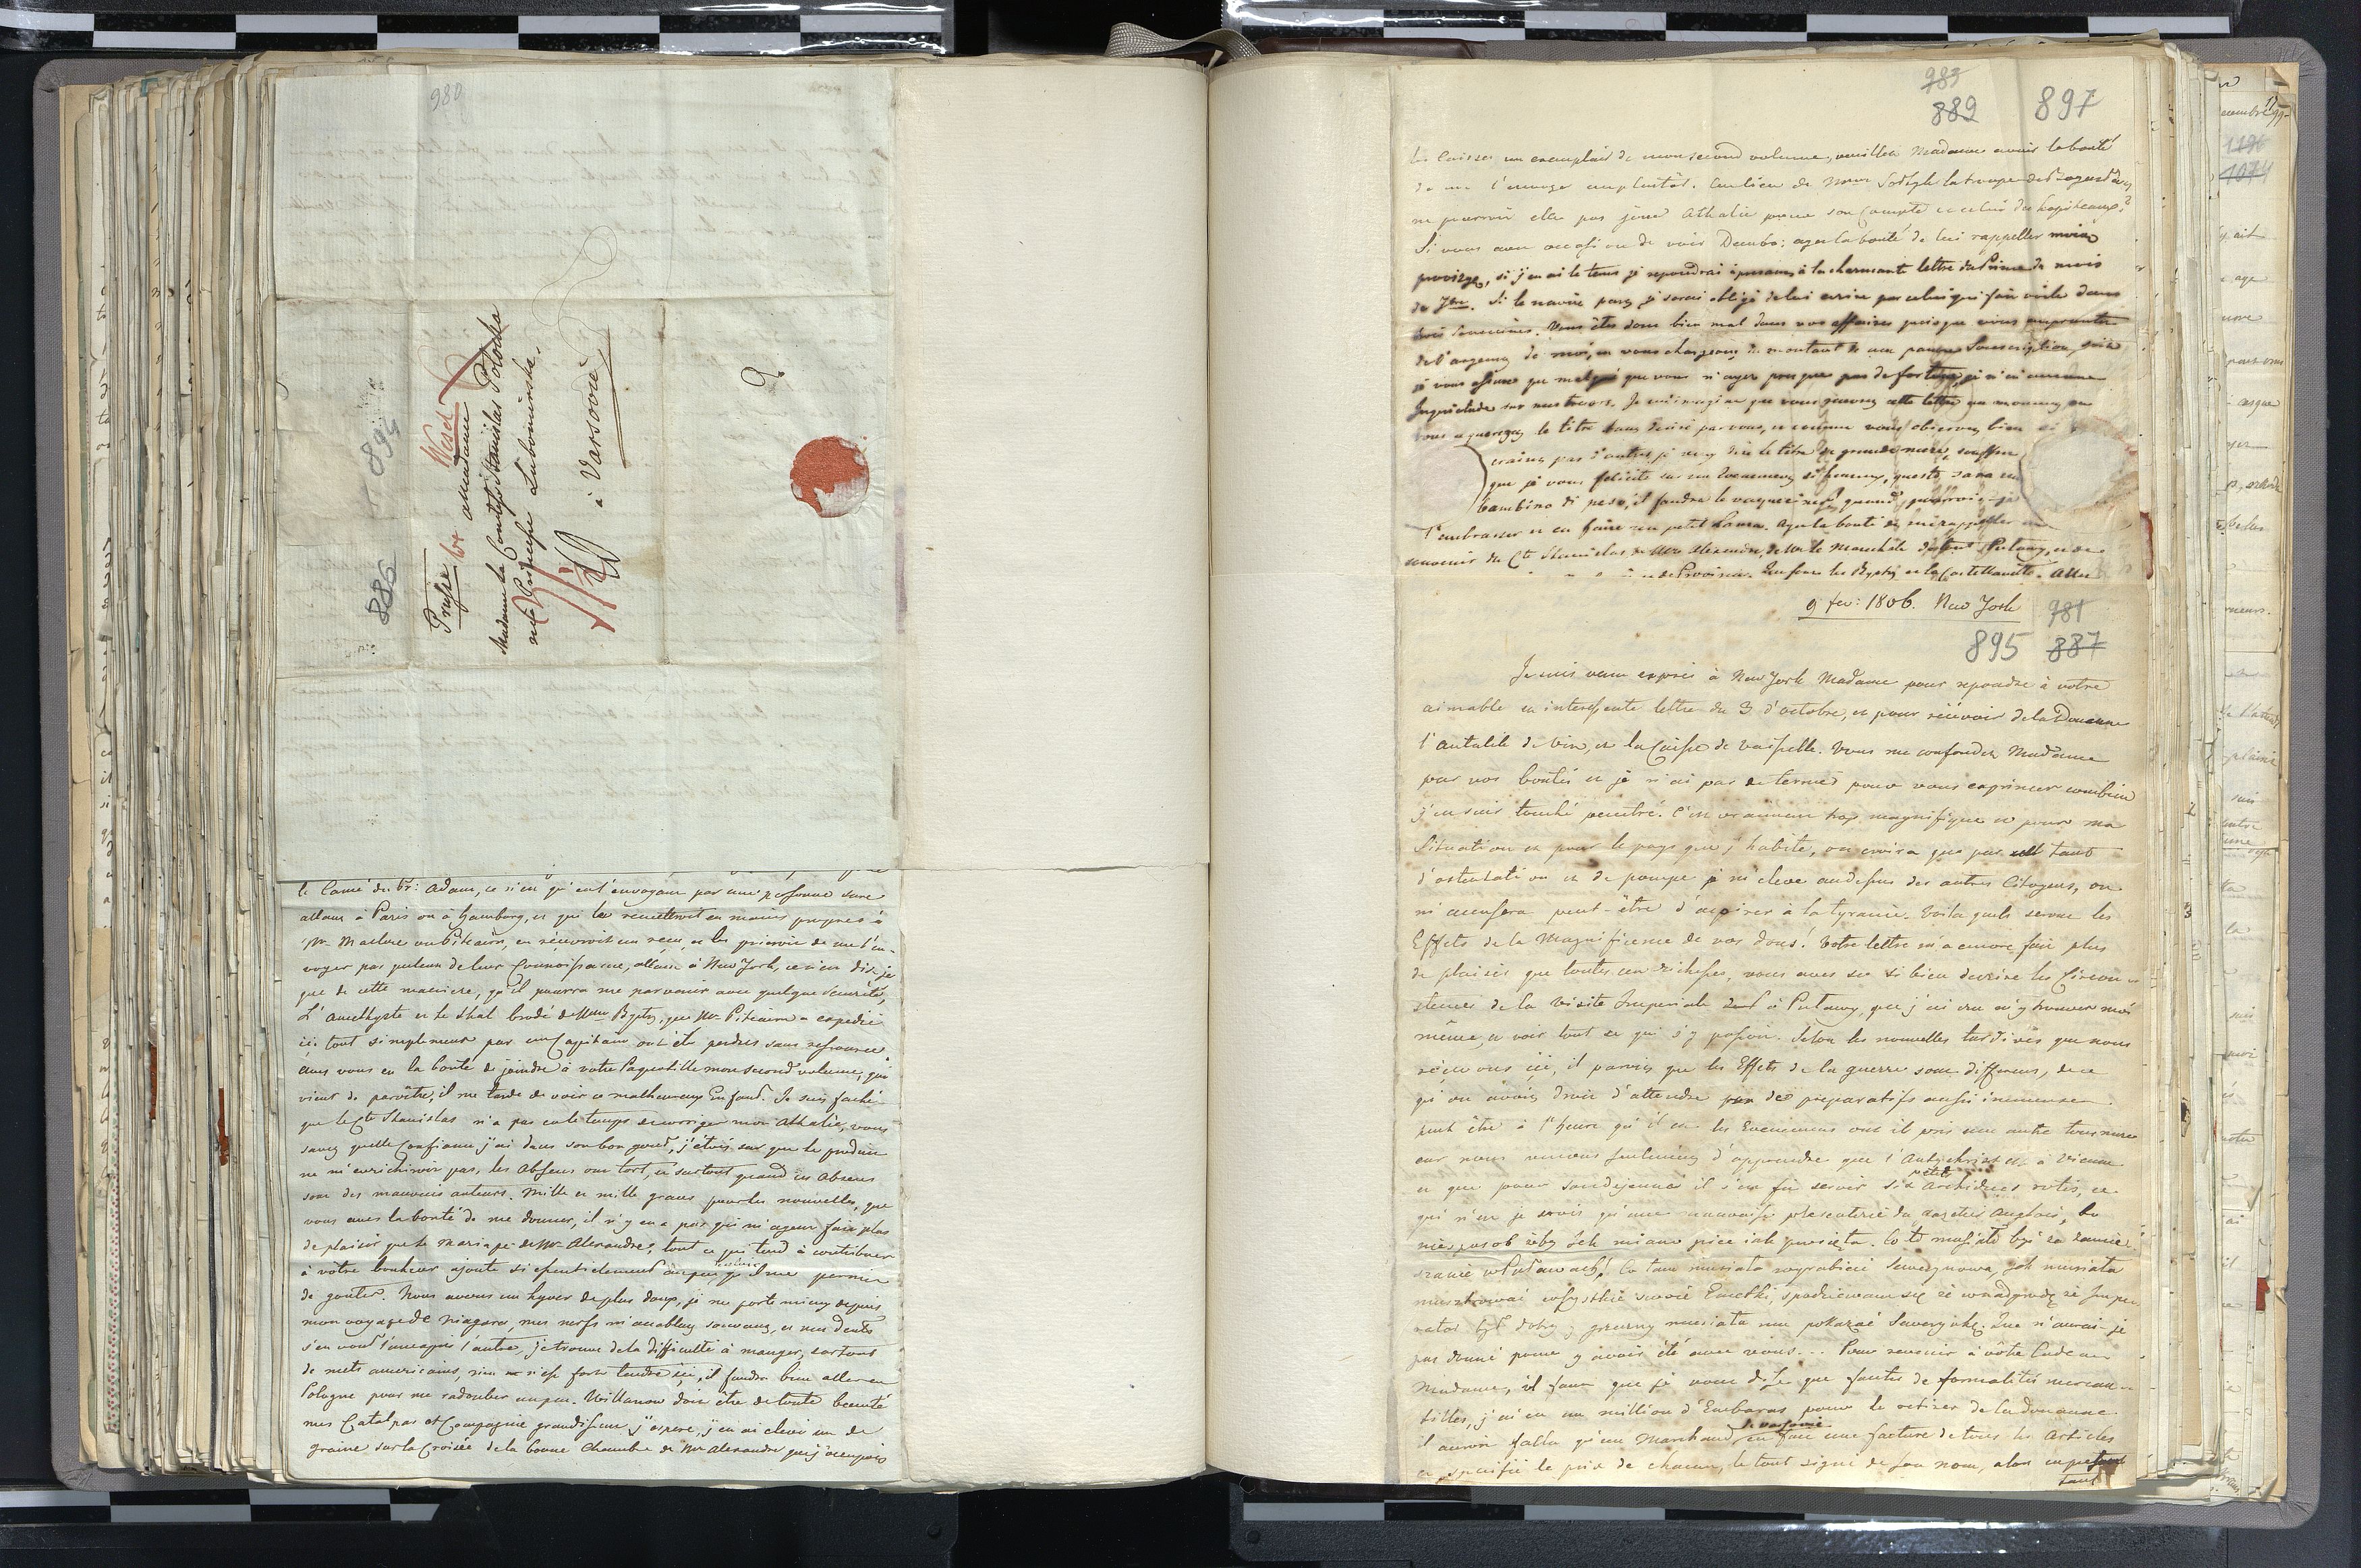 980
894
886
Prusse
West
à Madame
Madame la Comtesse Stanislas Potocka
née Princesse Lubomirska.
à Varsovie
le Camé du Pr: Adam, ce n'est qu'en l'envoyant par une personne sure
allant à Paris ou à Hamburg, et qui le remettroit en mains propres à
Mr Maclure ou Pitcairn, en récevroit un recu, et les prieroit de me l'en-
voyer par quelcun de leur Connoissance, allant à New York, ce n'est dis-je
que de cette maniere, qu'il pourra me parvenir avec quelque Sécurité,
L'Amethyste et le shal brodé de Mme Bystry, que Mr Pitcairn a expedié
ici tout simplement par un Capitaine ont été perdus sans ressource.
Avez vous eu la bonté de joindre à votre Paquotille mon second volume, qui
vient de paroître, il me tarde de voir ce malheureux Enfant. Je suis faché
que le Cte Stanislas n'a pas eu le temps de corriger mon Athalie, vous
savez quelle Confiance j'ai dans son bon gout, j'étois sur que le produit
ne m'enrichiroit pas, les Absens ont tort, et surtout quand ces Absens
sont des mauvais auteurs. Mille et mille graces pour les nouvelles, que
vous avez la bonté de me donner, il n'y en a pas qui m'ayent fait plus
de plaisir que le Mariage de Mr Alexandre, tout ce qui tend à contribuer
à votre bonheur ajoute si essentiellement au peu qu'il me permis
de gouter. Nous avons un hyver de plus doux, je me porte mieux depuis
mon voyage de Niagara, mes nerfs m'accablent souvent, et mes dents
s'en vont l'une après l'autre, je trouve de la difficulté à manger, surtout
de mets americains, rien n'est fort tendre ici, il faudra bien aller en
Pologne pour me radouber un peu. Willanow doit être de toute beauté
mes Catalpas et Compagnie grandissent j'espere, j'en ai elevé un de
graine sur la Croisée de la bonne Chambre de Mr Alexandre que j'occupois
989
889 897
laisser un exemplaire de mon second volume, veuillez Madame avoir la bonté
de me l'envoyer au plutôt. Au lieu de Mme
ne pourroit elle pas jouer Athalie pour son Compte et celui des hopiteaux?
Si vous avez occasion de voir Dembo: ayez la bonté de lui rappeller
, si j'en ai le tems je repondrai à la charmante lettre du Prince du mois
de 7bre. Si le navire part je serai obligé de lui ecrire par celui qui fait voile dans
trois semaines. Vous êtes donc bien mal dans vos affaires puisque vous empruntez
de l'argent de moi, en vous chargeant du montant de ma pauvre Souscription,
je vous assure que malgré que vous n'ayez presque pas de fortune, je n'ai aucune
Inquietude sur mes tresors. Je m'imagine que vous recevrez cette lettre au moment ou
vous aquerez le titre tant desiré par vous, et comme vous observez bien
craint par d'autres je veux dire le titre de grande mere, souffrez
que je vous felicite sur un Evenement si heureux, questo sara un
bambino di peso, il faudra le quand pourrois-je
l'embrasser et en faire un petit Lama. Ayez la bonté de me rappeller au
souvenir du Cte Stanislas de Mr Alexandre, de Mr le Marechale de tout Pulawy, et de
9 fev: 1806. New York 981
895 887
Je suis venu exprès à New York Madame pour repondre à votre
aimable et interessente lettre du 3 d'octobre, et pour récévoir de la Douanne
l'antalek de vin, et la Caisse de vaisselle. Vous me confondez Madame
par vos bontés et je n'ai pas de termes pour vous exprimer combien
j'en suis touché penetré. C'est vraiment trop magnifique et pour ma
Situation et pour le pays que j'habite, on croira que par tant
d'ostentation et de pompe je m'eleve audessus des autres Citoyens, on
m'accusera peut-être d'aspirer à la tyranie. Voila quels seront les
Effets de la Magnificence de vos dons! Votre lettre m'a encore fait plus
de plaisir que toutes ces richesses, vous avez su si bien decrire les Circon-
stences de la visite Imperiale à Pulawy, que j'ai cru m'y trouver moi
même, et voir tout ce qui s'y passoit. Selon les nouvelles tardives que nous
récevons ici, il paroit que les Effets de la guerre sont differens, de ce
qu'on avoit droit d'attendre des preparatifs aussi immenses.
peut être à l'heure qu'il est les Evenemens ont il pris une autre tournure
car nous venons seulement d'apprendre que l'Antychrist est à Vienne
et que pour son dejeuner il s'est fait servir six petits Archiducs rotis, ce
qui n'est je crois qu'une mauvaise plesenterie du gazetier Anglois, bo
niesposob żeby ich miano piec iak prosięta. Co to musiało byé za zamie-
szanie w Puławach! Co tam musiała wyrabiać Sewerynowa, jak musiała
musztrować wszystkie swoie Emetki, spodziewam się że w nadgrodę że Impe-
rator był dobry y grzeczny musiała mu pokazać Sewerynkę. Que n'aurai-je
pas donné pour y avoir été avec vous... Pour revenir à vôtre Cadeau
Madame, il faut que je vous dise que fautes de formalités mercan-
tilles, j'ai eu un million d'Embaras pour le retirer de la douanne
il auroit fallu qu'un Marchand de varsovie eut fait une facture de tous les Articles
et specifié le prix de chacun, le tout signé de son nom, alors en